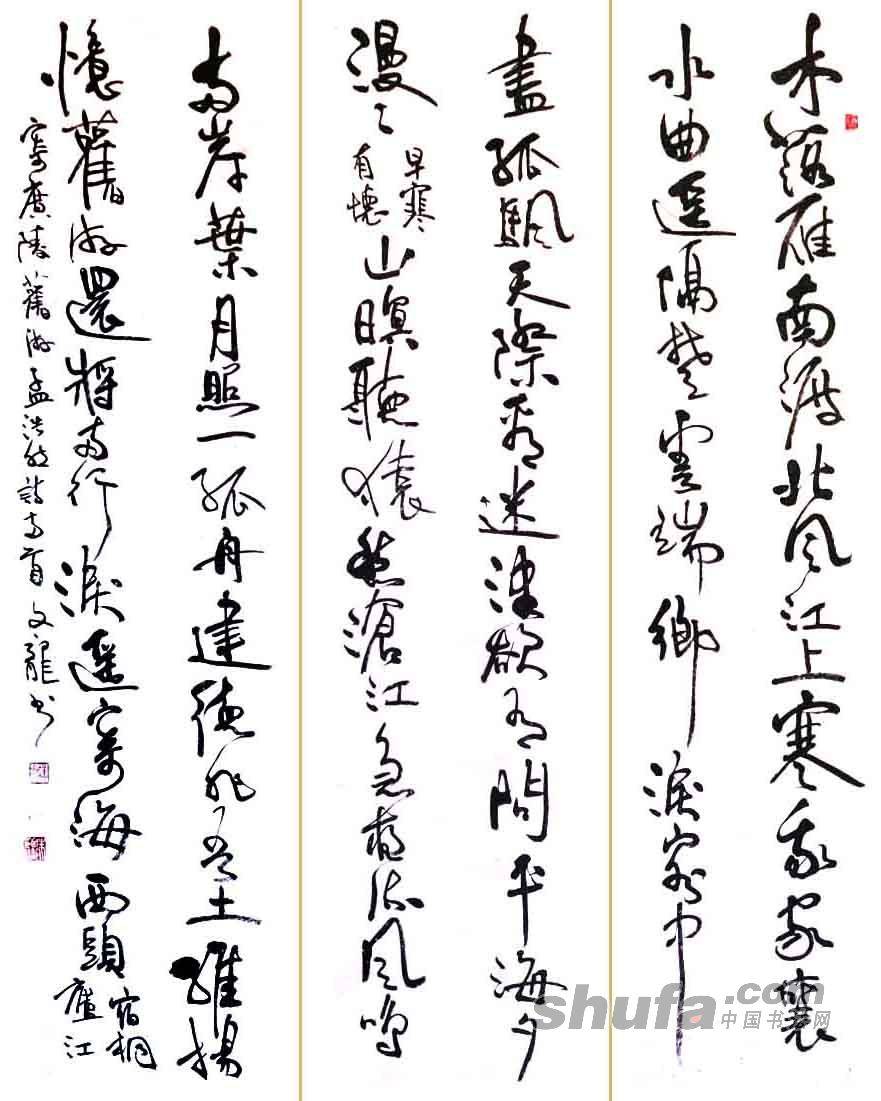 木落雁南渡北風江上寒我家襄
水曲遥隔楚雲端鄉淚客中
盡孤颿天際看迷津欲有問平海夕
漫〻
早寒
有懷
山暝聽猿愁滄江急夜流風鳴
兩岸葉月照一孤舟建德非吾土維揚
憶舊游還將兩行淚遥寄海西頭
宿桐
廬江
寄廣陵舊游孟浩然詩兩首文龍書
shufa.com
中国书法网